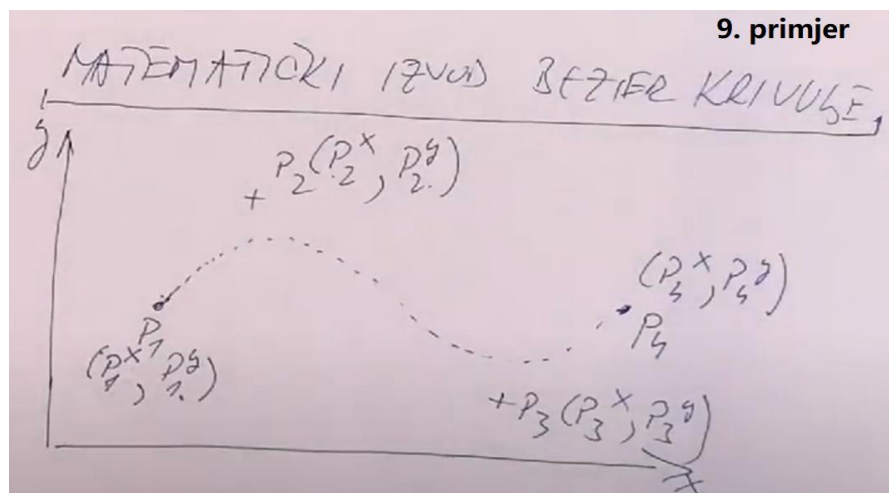 9. primjer
MATEMATIČKI IZVOD BEZIER KRIVULJE
y
P2(P2^x, P2^y)
+
(P4^x, P4^y)
P4
P1
(P1^x, P1^y)
+P3(P3^x, P3^y)
x